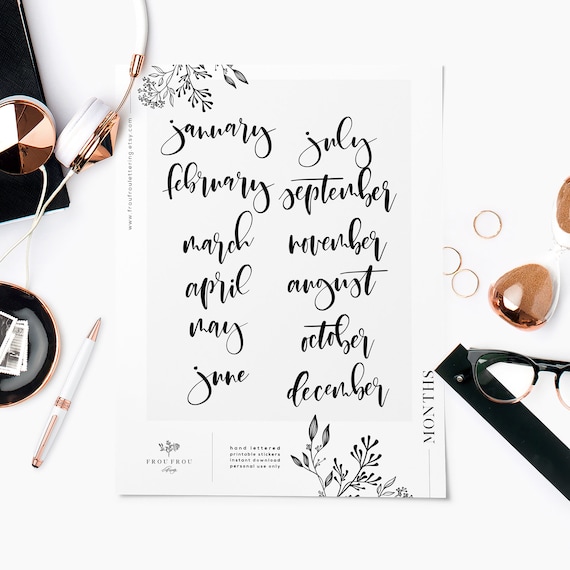 www.froufroulettering.etsy.com
january
february
march
april
may
june
july
september
november
august
october
december
MONTHS
FROU FROU
lettering
hand lettered
printable stickers
instant download
personal use only